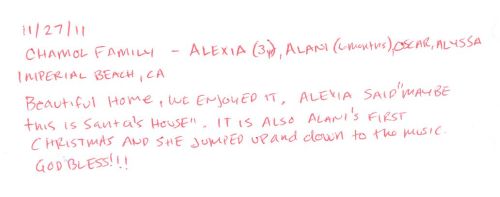 11/27/11
CHAMOL FAMILY - ALEXIA (3y), ALANI (6months), OSCAR, ALYSSA
IMPERIAL BEACH, CA
Beautiful Home, WE ENJOYED IT, ALEXIA SAID "MAYBE
this is Santa's House". IT IS ALSO ALANI'S FIRST
CHRISTMAS AND SHE JUMPED UP and down to the MUSIC.
GOD BLESS!!!